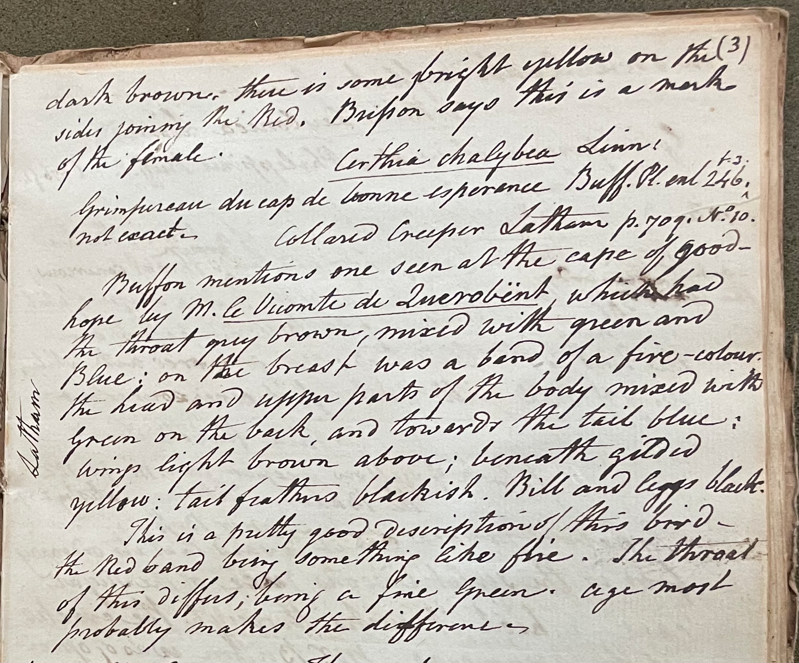 (3)
dark brown. there is some bright yellow on the
sides joining the Red. Brisson says this is a mark
of the female.
Certhia chalybea Linn:
f.3.
Grimpereau du cap de bonne esperance Buff. Pl. enl 246.
not exact. Collared Creeper Latham p. 709. No. 10.
Buffon mentions one seen at the cape of good-
hope by M. le Vicomte de Querobënt, which had
the throat grey brown, mixed with green and
Blue; on the breast was a band of a fire-colour.
the head and upper parts of the body mixed with
Green on the back, and towards the tail blue:
wings light brown above; beneath gilded
yellow: tail feathers blackish. Bill and legs black.
Latham
This is a pretty good description of this bird-
the Red band being something like fire. The throat
of this differs, being a fine Green. age most
probably makes the difference.